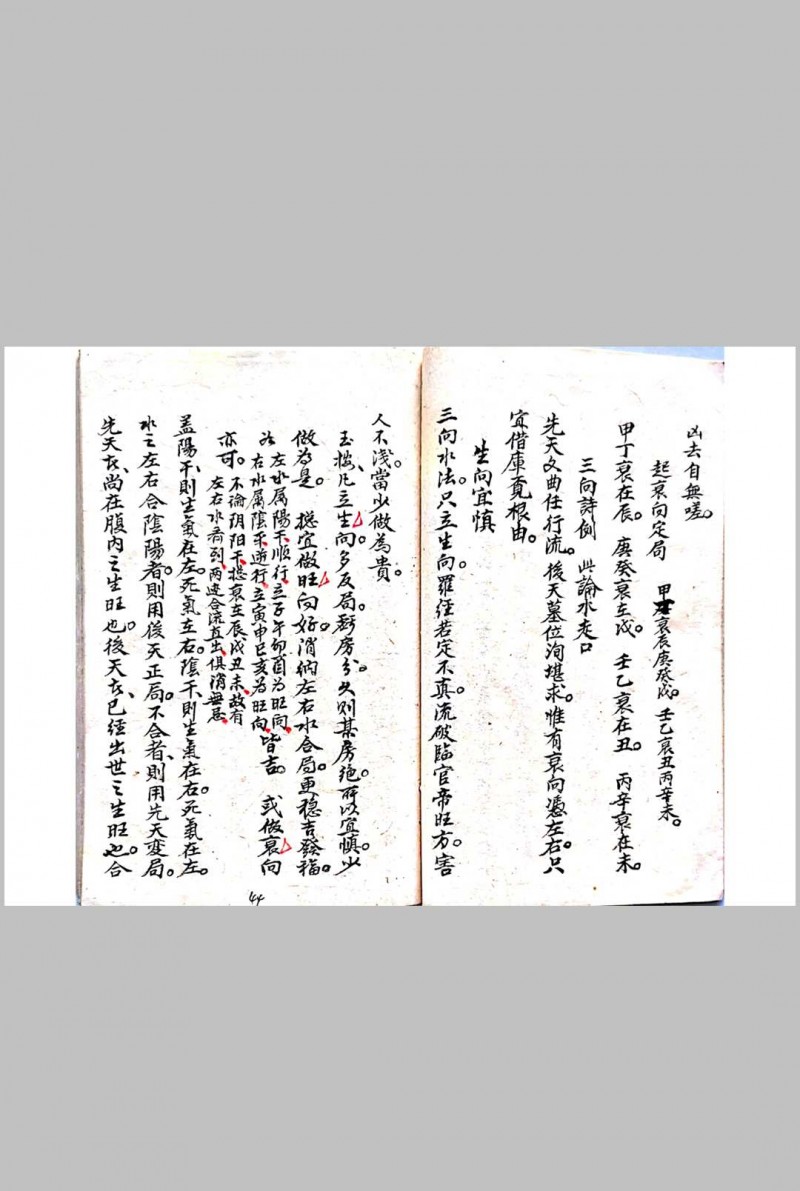 凶去自無嗟。
起衰向定局　甲丁衰辰庚癸戌。壬乙衰丑丙辛未。
甲丁衰在辰。庚癸衰在戌。壬乙衰在丑。丙辛衰在未。
三向詩例　此論水走口
先天文曲任行流。後天墓位洵堪求。惟有衰向憑左右。只
宜借庫覓根由。
生向宜慎
三向水法。只立生向。羅經若定不真。流破臨官帝旺方。害
人不淺。當少做為貴。
玉按、凡立生向多反局。房分欠則某房絶。所以宜慎。少
做為是。　總宜做旺向好。消納左右水合局。更穩吉發福。
左水属陽干、順行、立子午卯酉為旺向、
右水属陰干、逆行、立寅申巳亥為旺向、
皆吉。　或做衰向
亦可。
不論阴阳干、總衰在辰戌丑未、故有
左右水斉到、兩边合流直出、俱消無忌、
蓋陽干、則生氣在左。死氣在右。陰干、則生氣在右。死氣在左。
水之左右合陰陽者、則用後天正局。不合者、則用先天变局。
先天者、尚在腹内之生旺也。後天者、已經出世之生旺也。合
44